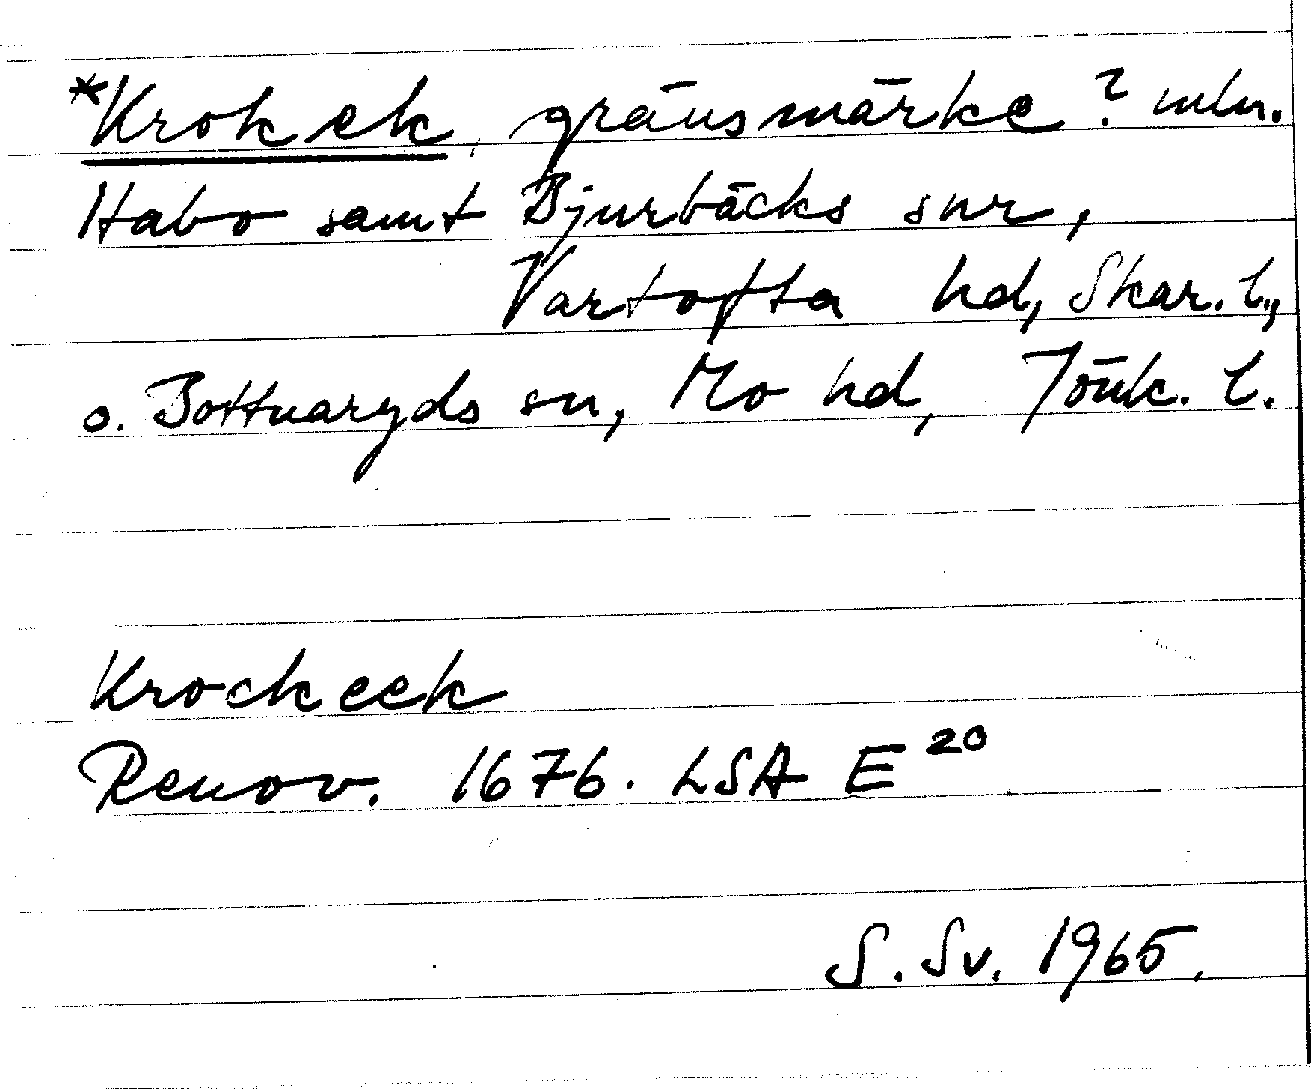 *Krokek, gränsmärke? mln.
Habo samt Bjurbäcks snr,
Vartofta hd, Skar. l.,
o. Bottnaryds sn, Mo hd, Jönk. l.
Krockeek
Renov. 1676. LSA E 20
S. Sv. 1965.